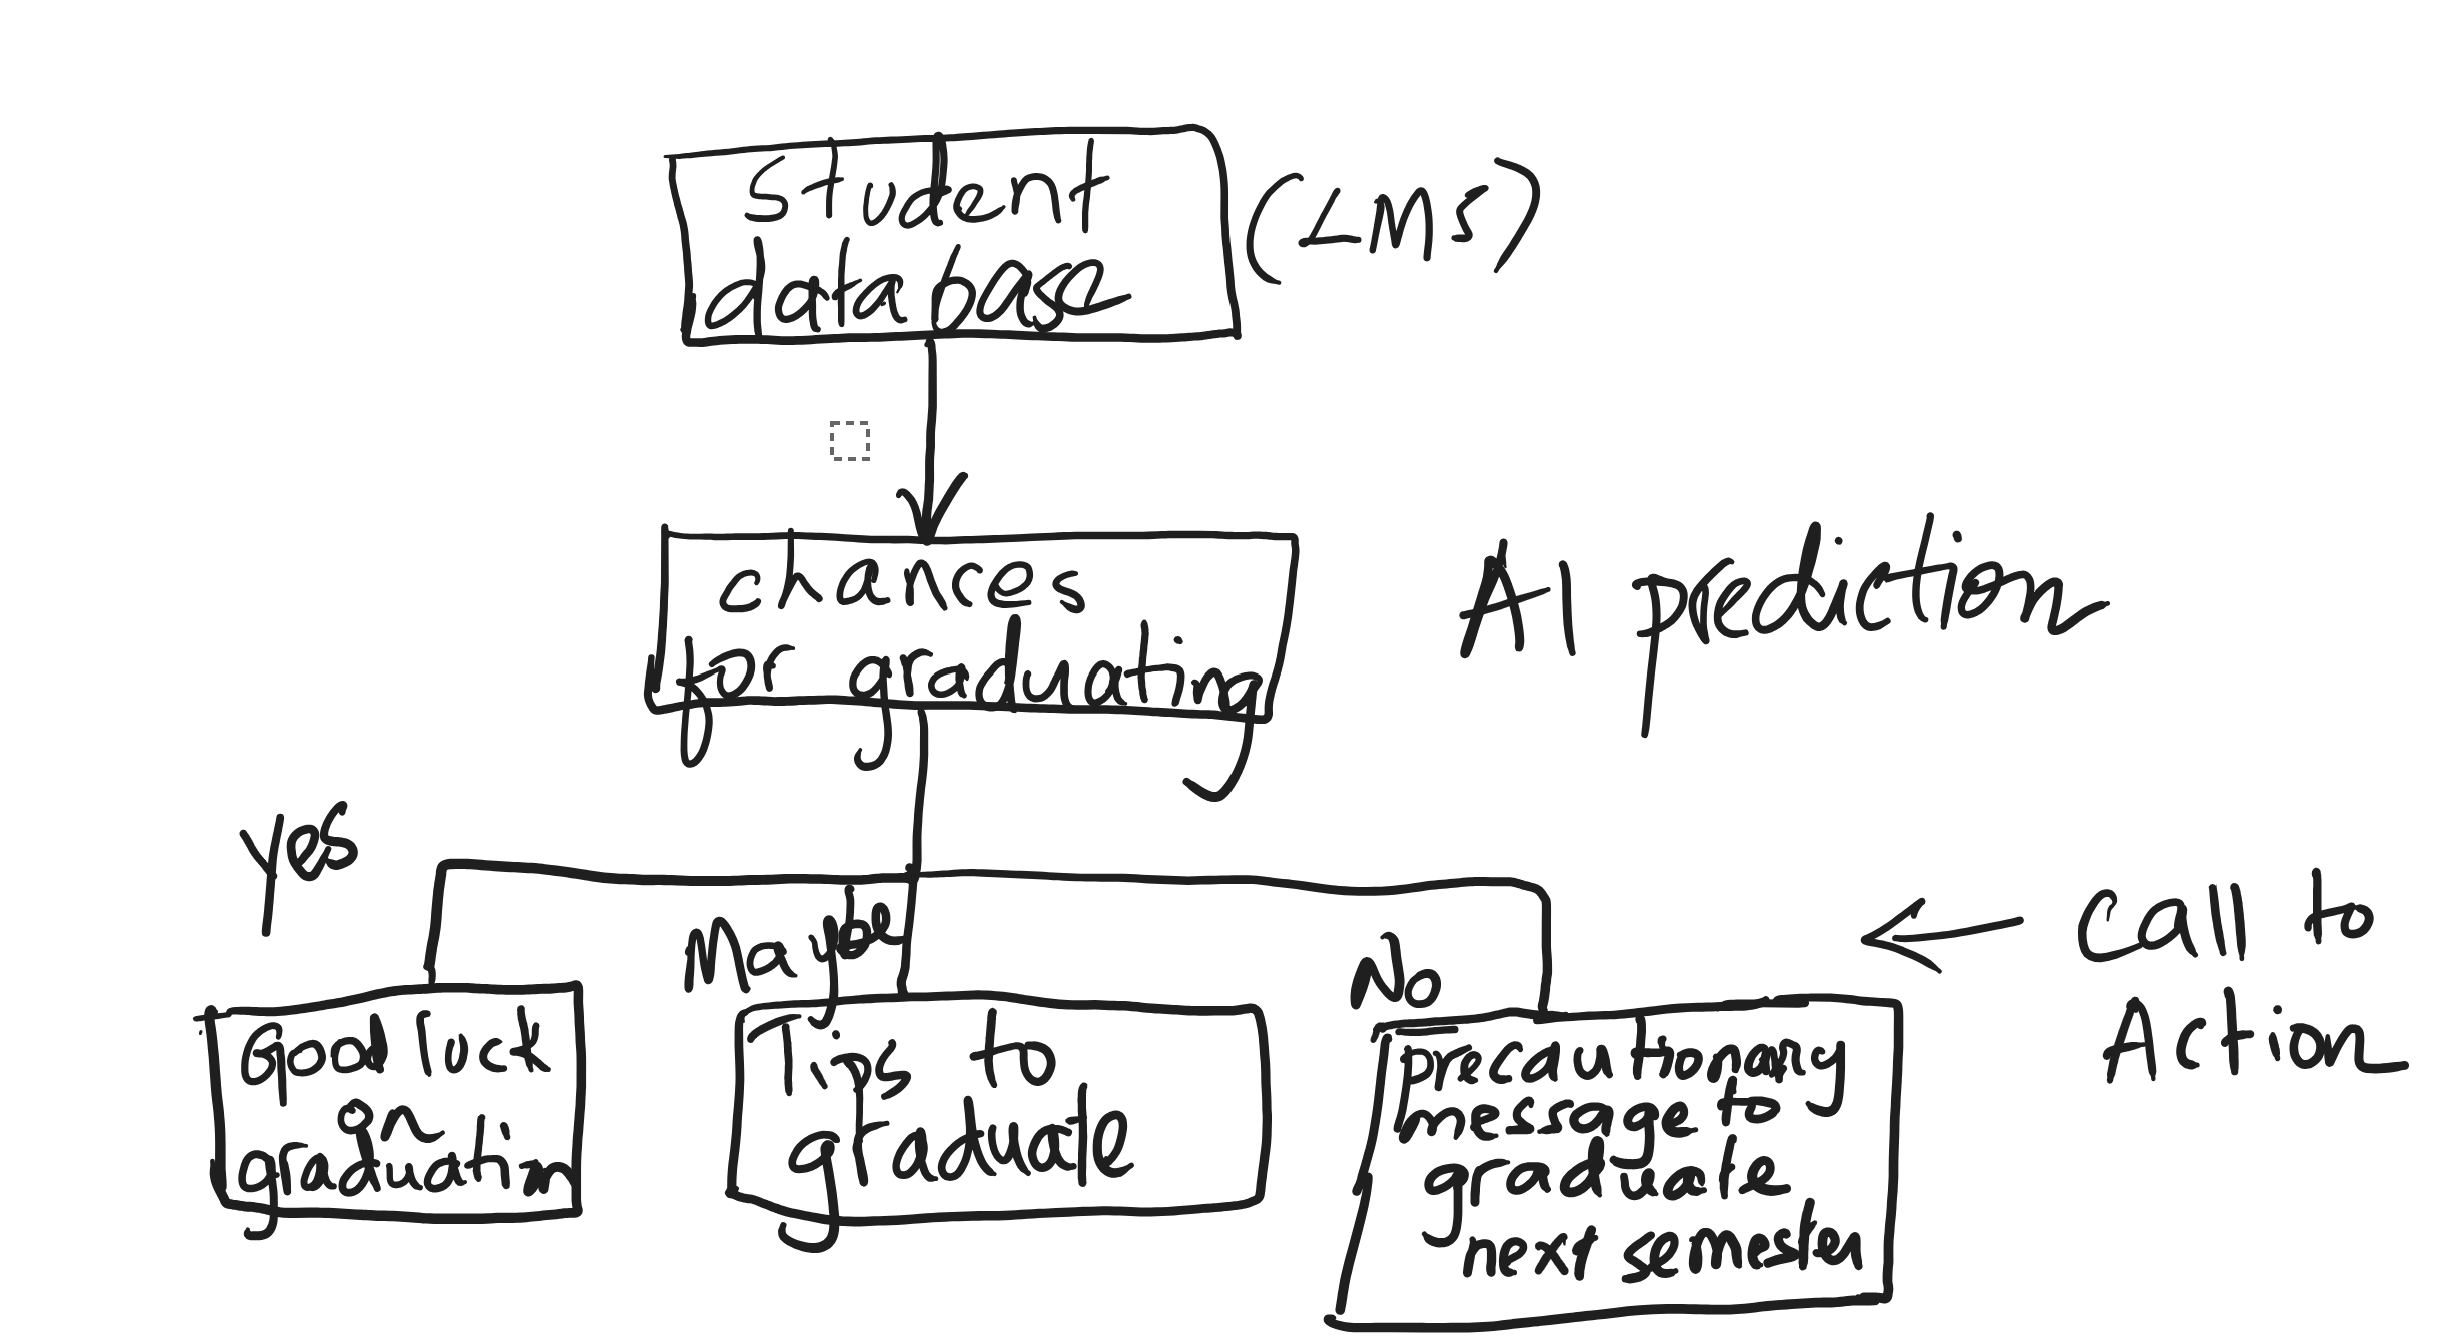 student
database
(LMS)
chances
for graduating
AI prediction
yes
Maybe
No
call to
Action
Good luck
on
graduation
Tips to
graduate
precautionary
message to
graduate
next semester